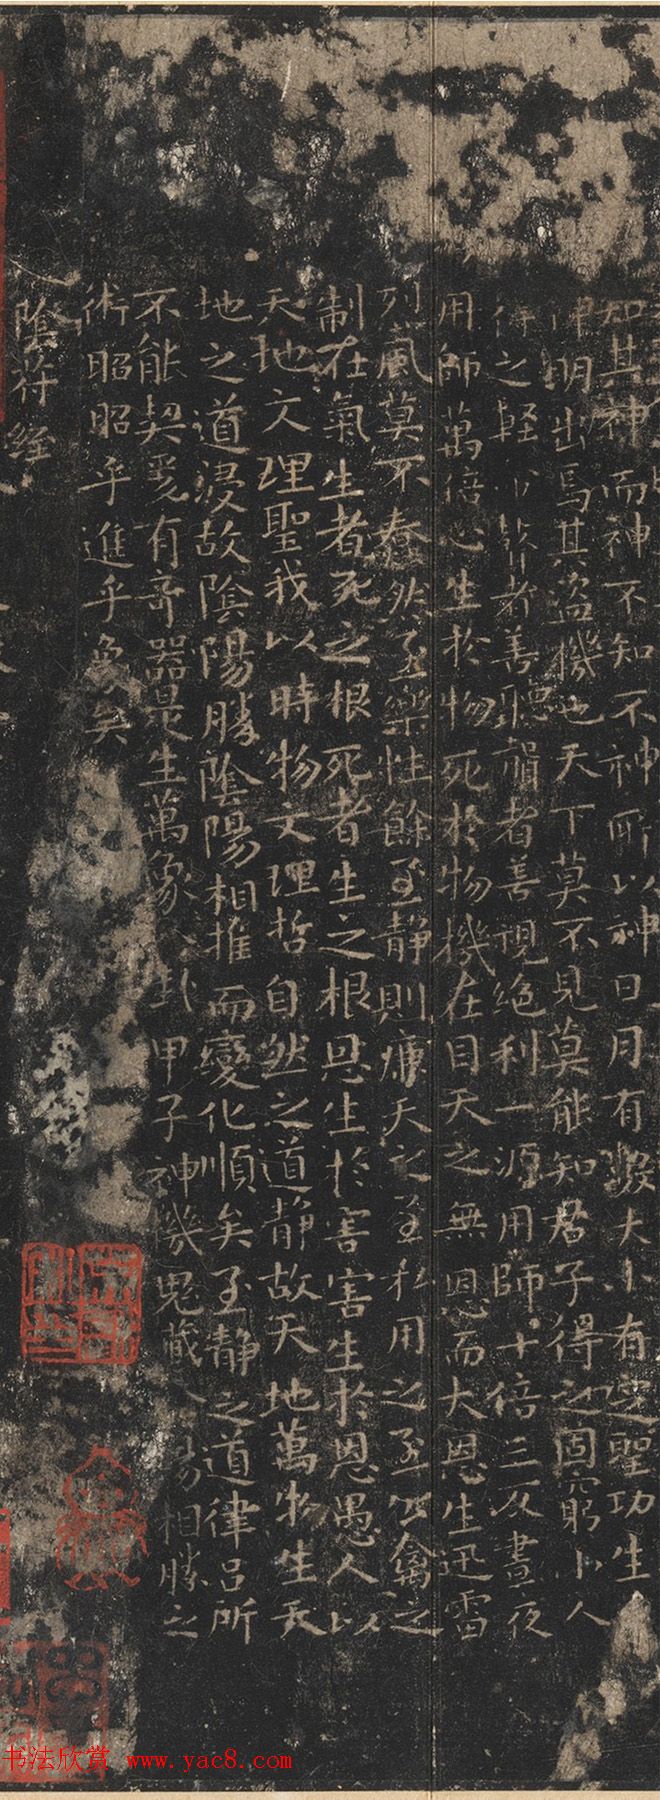 知其神而神不知不神所以神日月有數大小有定聖功生
神明出焉其盜機也天下莫不見莫能知君子得之固窮小人
得之輕瞽者善聽聾者善視絶利一源用師十倍三反晝夜
用師萬倍心生於物死於物機在目天之無恩而大恩生迅雷
烈風莫不蠢然至樂性餘至靜則廉天之至私用之至公禽之
制在氣生者死之根死者生之根恩生於害害生於恩愚人以
天地文理聖我以時物文理哲自然之道靜故天地萬物生天
地之道浸故陰陽勝陰陽相推而變化順矣至靜之道律呂所
不能契爰有奇器是生萬象八卦甲子神機鬼藏陽相勝之
術昭昭乎進乎象矣
陰符經
书法欣赏 www.yac8.com